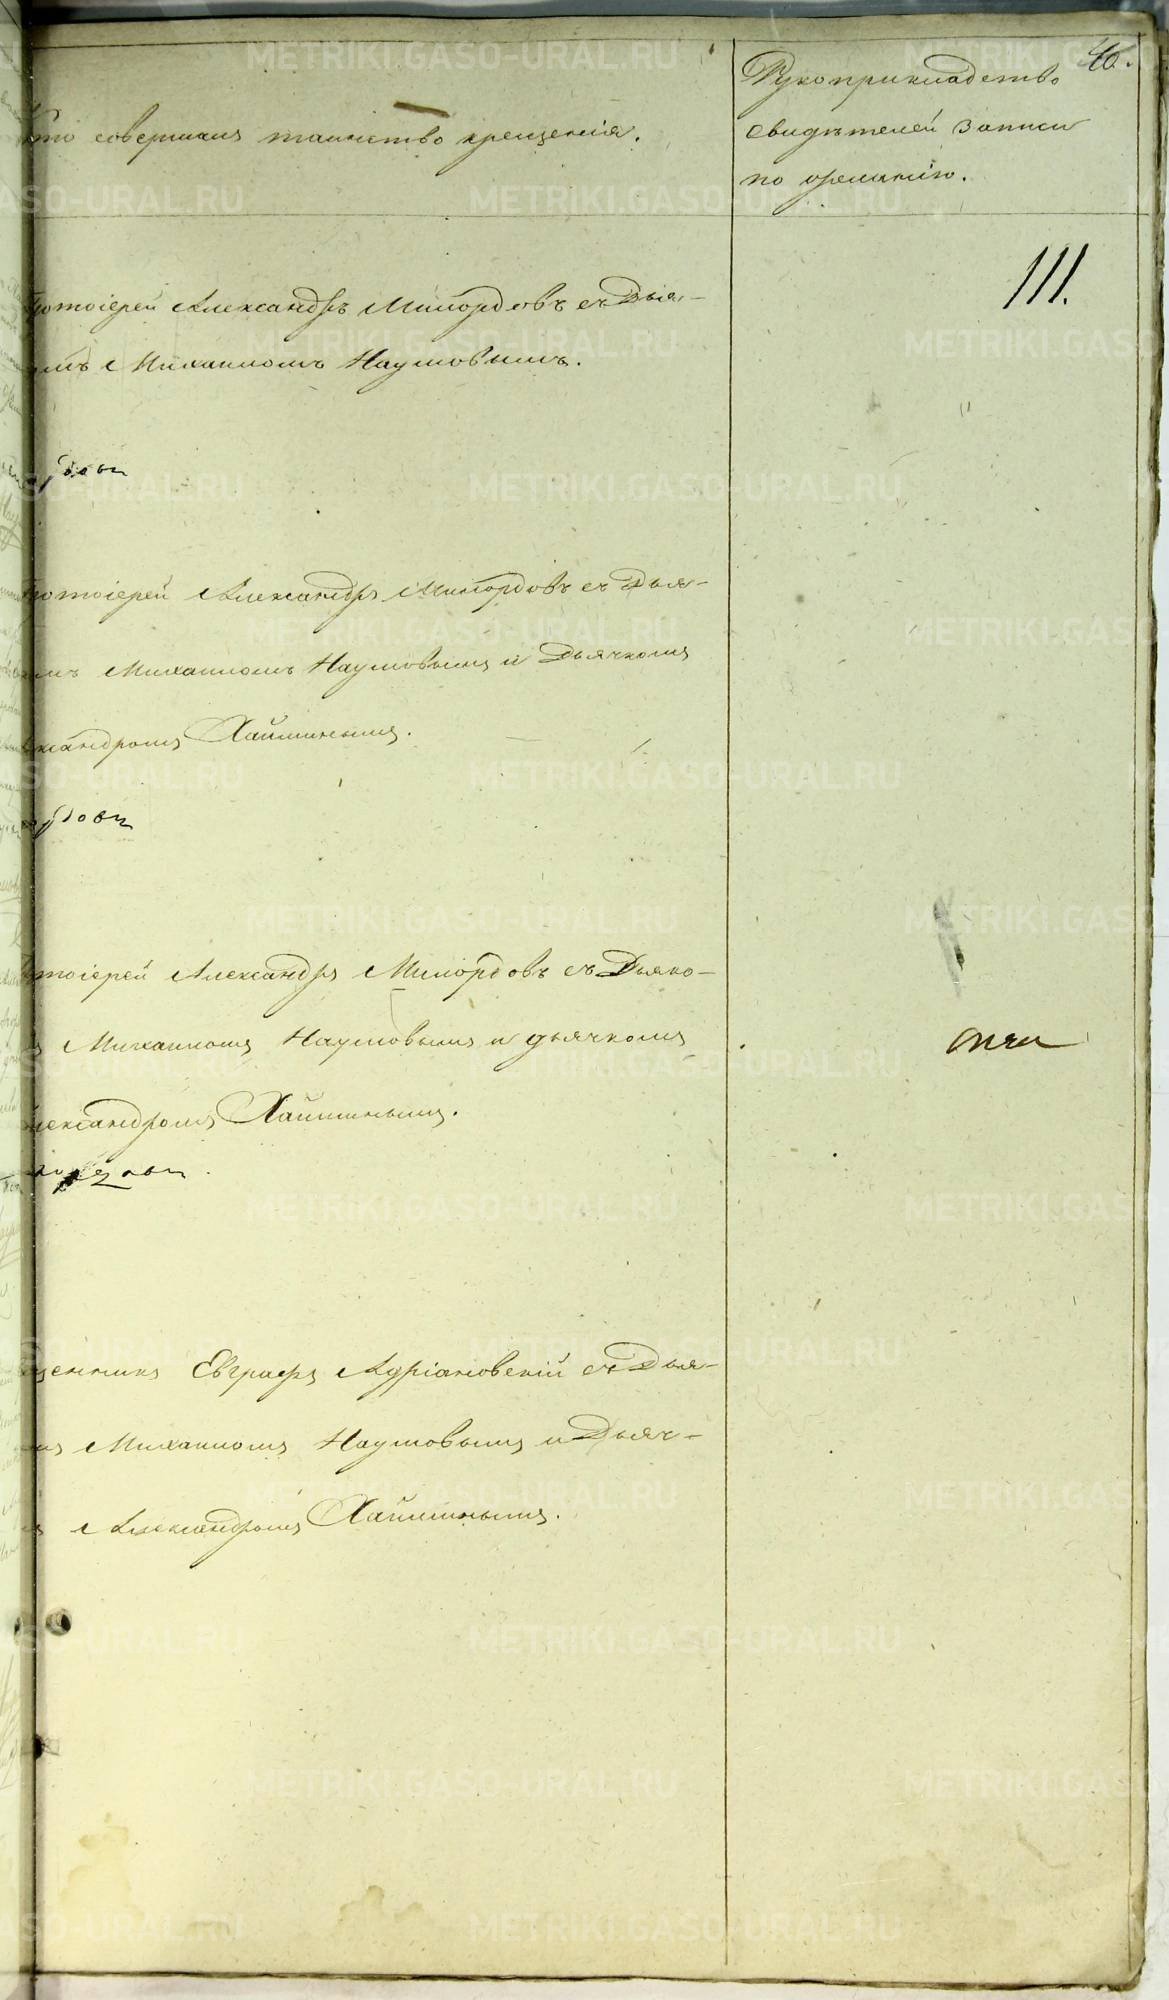 46.
Кто совершалъ таинство крещенія.
Рукоприкладство
свидѣтелей записи
по желанію.
111.
ротоіерей Александръ Милордовъ съ Дья-
омъ Михаиломъ Наумовымъ.
ротоіерей Александръ Милордовъ съ Дья-
омъ Михаиломъ Наумовымъ и Дьячкомъ
ександромъ Хайминымъ.
тоіерей Александръ Милордовъ съ Дьяко-
ъ Михаиломъ Наумовымъ и дьячкомъ
лександромъ Хайминымъ.
щенникъ Евграфъ Адріановскій съ Дья-
мъ Михаиломъ Наумовымъ и Дьяч-
ъ Александромъ Хайминымъ.
METRIKI.GASO-URAL.RU